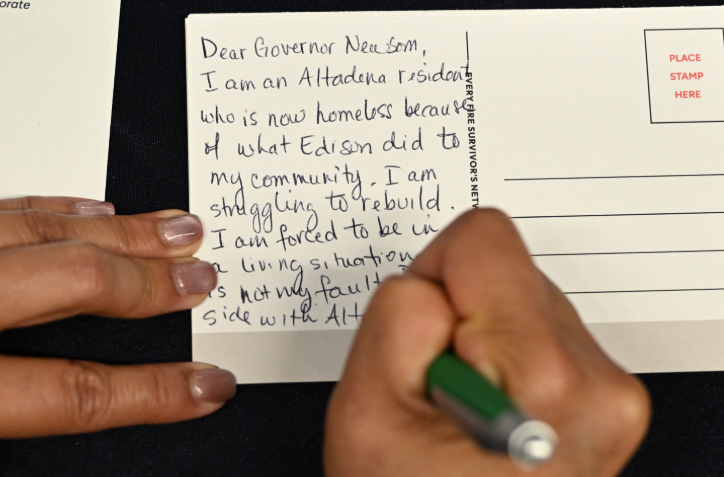 orate
Dear Governor Newsom,
I am an Altadena resident
who is now homeless because
of what Edison did to
my community. I am
struggling to rebuild.
I am forced to be in
a living situation
is not my fault
side with Alt
EVERY FIRE SURVIVOR'S NETW
PLACE
STAMP
HERE